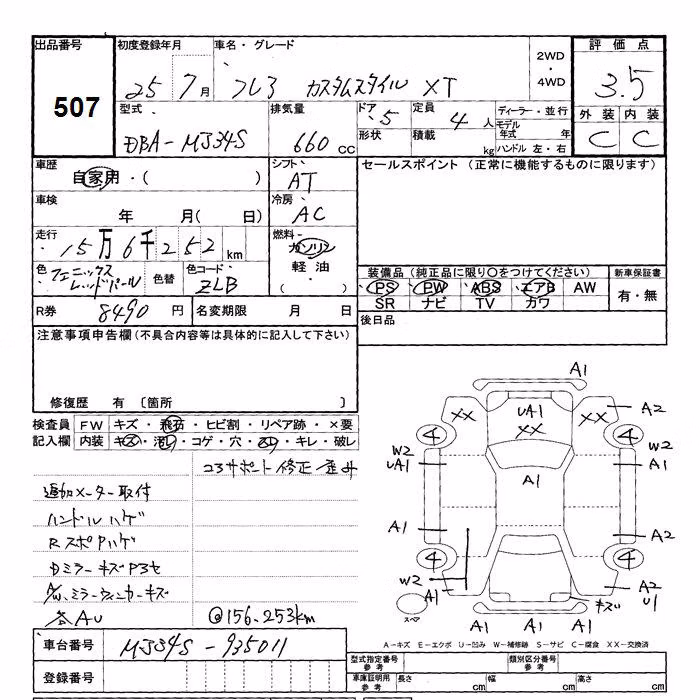 出品番号 初度登録年月 車名・グレード 2WD ・ 4WD 評価点
507 25 7月 フレア カスタムスタイル XT 3.5
型式 排気量 ドア 定員 ディーラー・並行 外装 内装
DBA-MJ34S 660 cc 5 4人 モデル年式 年 C C
形状 積載 kg ハンドル 左・右
車歴 シフト セールスポイント (正常に機能するものに限ります)
自家用・( ) AT
車検 冷房
年 月( 日) AC
走行 燃料
15万6千252km ガソリン
色 フェニックスレッドパール 色替 色コード ZLB 軽油・( )
装備品 (純正品に限り○をつけてください) 新車保証書
PS PW ABS エアB AW 有・無
SR ナビ TV カワ
R券 8490 円 名変期限 月 日 後日品
注意事項申告欄 (不具合内容等は具体的に記入して下さい)
修復歴 有 〔箇所 〕
検査員 FW キズ・飛石・ヒビ割・リペア跡・×要
記入欄 内装 キズ・汚レ・コゲ・穴・スレ・キレ・破レ
コアサポート 修正 歪み
追加メーター取付
ハンドルハゲ
RスポPハゲ
Dミラーキズ P3セ
A/W、ミラーウィンカーキズ
各AU @156.253km
A1
XX UA1 XX XX A2
4 4
W2 UA1 A1 W2 A1
A1 A2
4 4
W2 A1 A2 U1
スペア キズ
A1 A1 A1
A-キズ E-エクボ U-凹み W-補修跡 S-サビ C-腐食 XX-交換済
車台番号 MJ34S-935011
型式指定番号 参考 類別区分番号 参考
登録番号 車庫証明用 参考 長さ cm 幅 cm 高さ cm